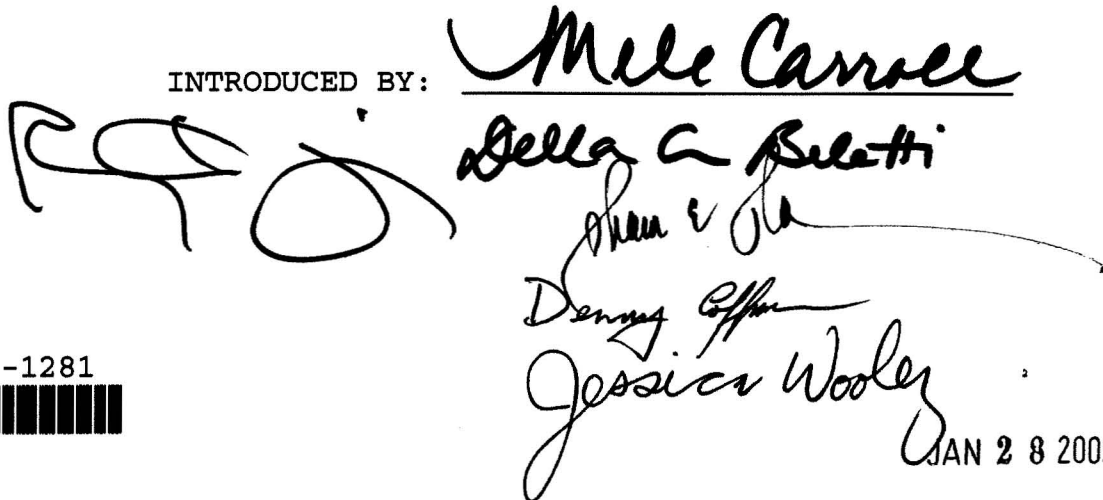 INTRODUCED BY: Mele Carroll
Della A Belatti
Denny Coffman
Jessica Wooley
-1281
JAN 28 200